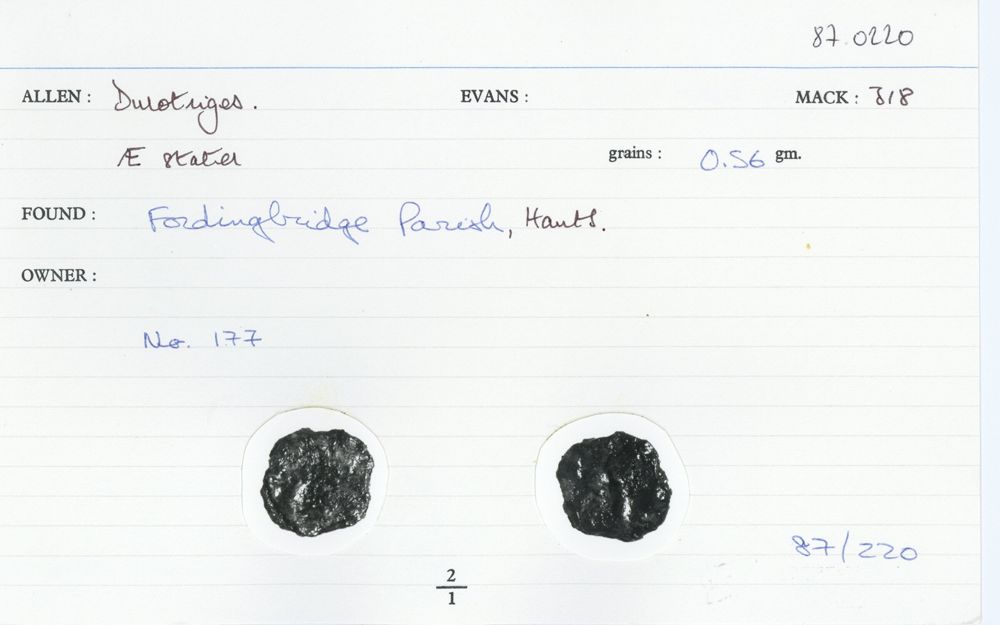 87.0220
ALLEN : Durotriges. EVANS : MACK : 318
Æ stater grains : 0.56 gm.
FOUND : Fordingbridge Parish, Hants.
OWNER :
No. 177
87/220
2
1